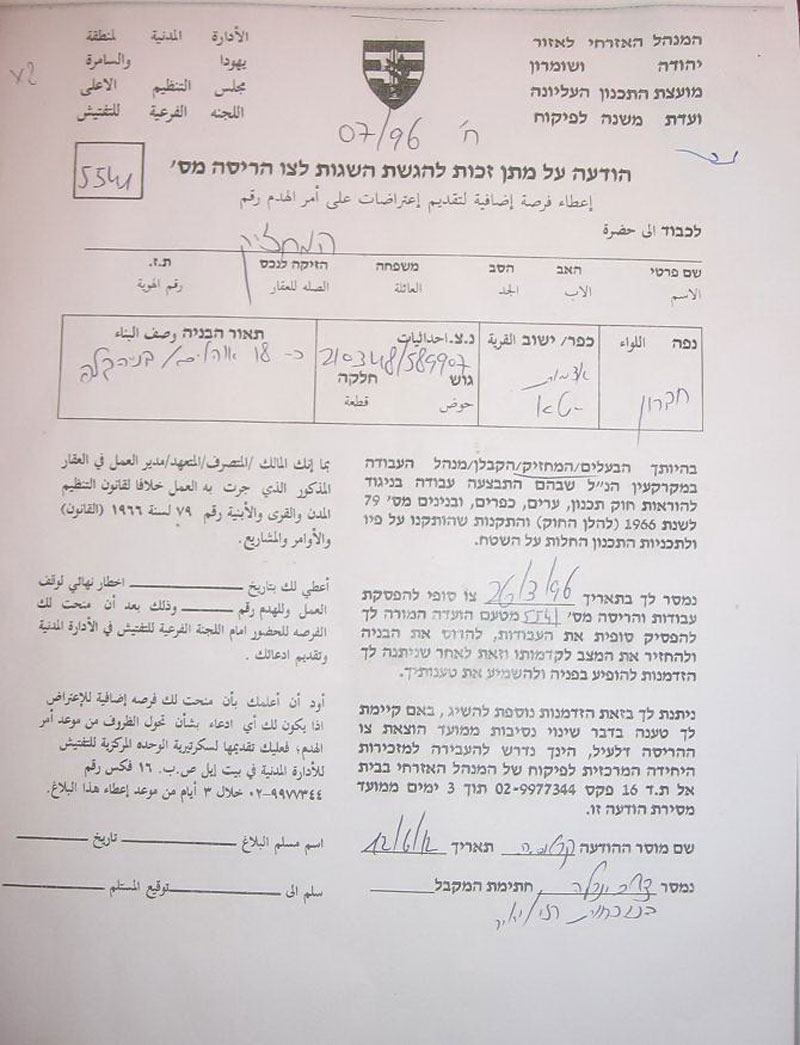 המנהל האזרחי לאזור
יהודה ושומרון
מועצת התכנון העליונה
ועדת משנה לפיקוח
الأدارة المدنية لمنطقة
يهودا والسامرة
مجلس التنظيم الاعلى
اللجنه الفرعية للتفتيش
ח' 07/96
הודעה על מתן זכות להגשת השגות לצו הריסה מס'
5541
إعطاء فرصة إضافية لتقديم إعتراضات على أمر الهدم رقم
לכבוד الى حضرة
המחזיק
שם פרטי האב הסב משפחה הזיקה לנכס ת.ז.
الاسم الاب الجد العائلة الصله للعقار رقم الهوية
נפה اللواء
חברון
כפר/ ישוב القرية
אדמות
יטא
נ.צ.احداثيات
210348/589907
גוש חלקה
حوض قطعة
תאור הבניה وصف البناء
כ- 18 אוהלים/ בניה קלה
בהיותך הבעלים/המחזיק/הקבלן/מנהל העבודה
במקרקעין הנ"ל שבהם התבצעה עבודה בניגוד
להוראות חוק תכנון, ערים, כפרים, ובנינים מס' 79
לשנת 1966 (להלן החוק) והתקנות שהותקנו על פיו
ולתכניות התכנון החלות על השטח.
נמסר לך בתאריך צו סופי להפסקת
עבודות והריסה מס' 5541 מטעם הועדה המורה לך
להפסיק סופית את העבודות, להרוס את הבניה
ולהחזיר את המצב לקדמותו וזאת לאחר שניתנה לך
הזדמנות להופיע בפניה ולהשמיע את טענותיך.
ניתנת לך בזאת הזדמנות נוספת להשיג, באם קיימת
לך טענה בדבר שינוי נסיבות ממועד הוצאת צו
ההריסה דלעיל, הינך נדרש להעבירה למזכירות
היחידה המרכזית לפיקוח של המנהל האזרחי בבית
אל ת.ד 16 פקס 02-9977344 תוך 3 ימים ממועד
מסירת הודעה זו.
שם מוסר ההודעה תאריך 12/6/12
נמסר חתימת המקבל
بما إنك المالك /المتصرف/المتعهد/مدير العمل في العقار
المذكور الذي جرت به العمل خلافا لقانون التنظيم
المدن والقرى والأبنية رقم ٧٩ لسنة ١٩٦٦ (القانون)
والأوامر والمشاريع.
أعطي لك بتاريخ اخطار نهائي لوقف
العمل وللهدم رقم وذلك بعد أن منحت لك
الفرصه للحضور امام اللجنة الفرعية للتفتيش في الأدارة المدنية
وتقديم ادعائك.
أود أن أعلمك بأن منحت لك فرصه إضافية للإعتراض
اذا يكون لك أي ادعاء بشأن تحول الظروف من موعد أمر
الهدم؛ فعليك تقديمها لسكرتيرية الوحده المركزية للتفتيش
للأدارة المدنية في بيت إيل ص.ب. ١٦ فكس رقم
٠٢-٩٩٧٧٣٤٤ خلال ٣ أيام من موعد إعطاء هذا البلاغ.
اسم مسلم البلاغ تاريخ
سلم الى توقيع المستلم